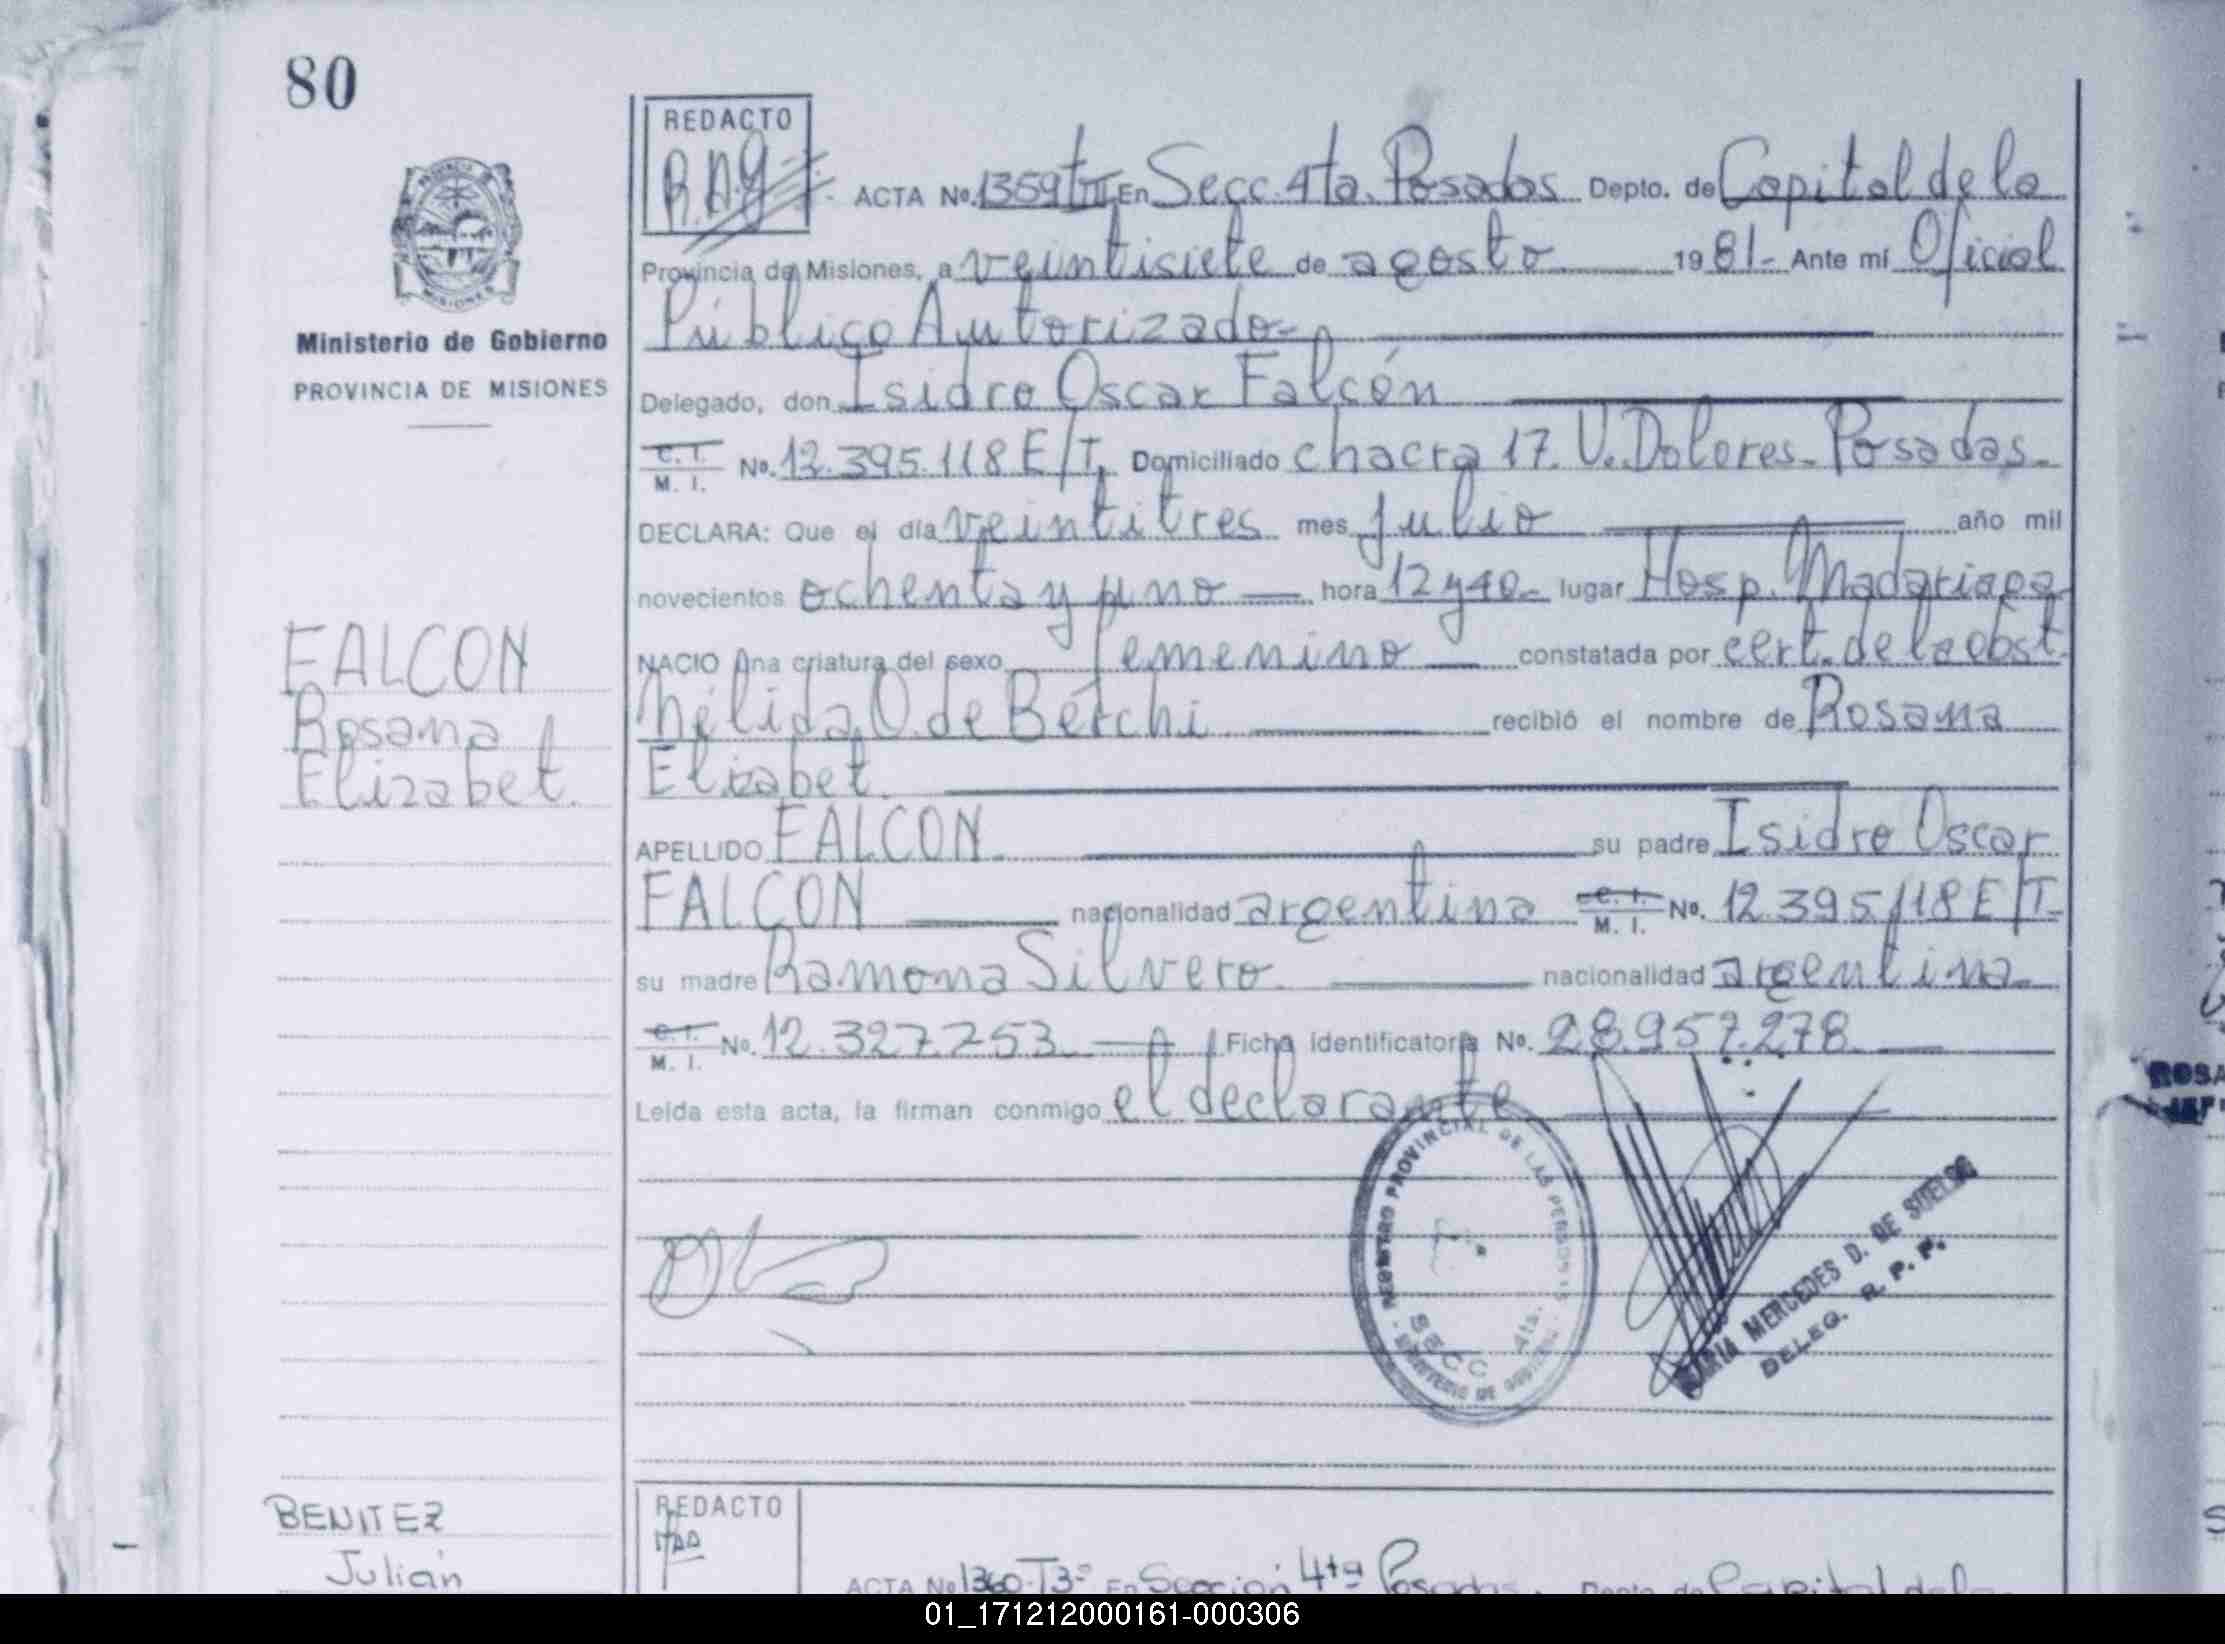 80
REDACTO
R.A.G
ACTA No. 1359 t III En Secc. 4ta. Posadas Depto. de Capital de la
Provincia de Misiones, a veintisiete de agosto 1981.- Ante mí Oficial
Público Autorizado-
Ministerio de Gobierno
PROVINCIA DE MISIONES
Delegado, don Isidro Oscar Falcón
C. I.
M. I. No. 12.395.118 E/T, Domiciliado chacra 17. V. Dolores- Posadas-
DECLARA: Que el día veintitres mes julio año mil
novecientos ochenta y uno hora 12 y 40- lugar Hosp. Madariaga
NACIO una criatura del sexo femenino constatada por cert. de la obst.
Nélida O. de Bérchi recibió el nombre de Rosana
Elizabet.
FALCON
Rosana
Elizabet.
APELLIDO FALCON. su padre Isidro Oscar
FALCON nacionalidad argentina C. I.
M. I. No. 12.395.118 E/T-
su madre Ramona Silvero. nacionalidad argentina-
C. I.
M. I. No. 12.327.253 Ficha identificatoria No. 28.957.278
Leída esta acta, la firman conmigo el declarante
REGISTRO PROVINCIAL DE LAS PERSONAS
SECC 4ta.
MINISTERIO DE GOBIERNO
MARIA MERCEDES D. DE
DELEG. R. P. P.
BENITEZ
Julián
REDACTO
ACTA No 1360-T3º En Sección 4ta Posadas. Depto. de Capital de la
ROSA
JEF
01_171212000161-000306